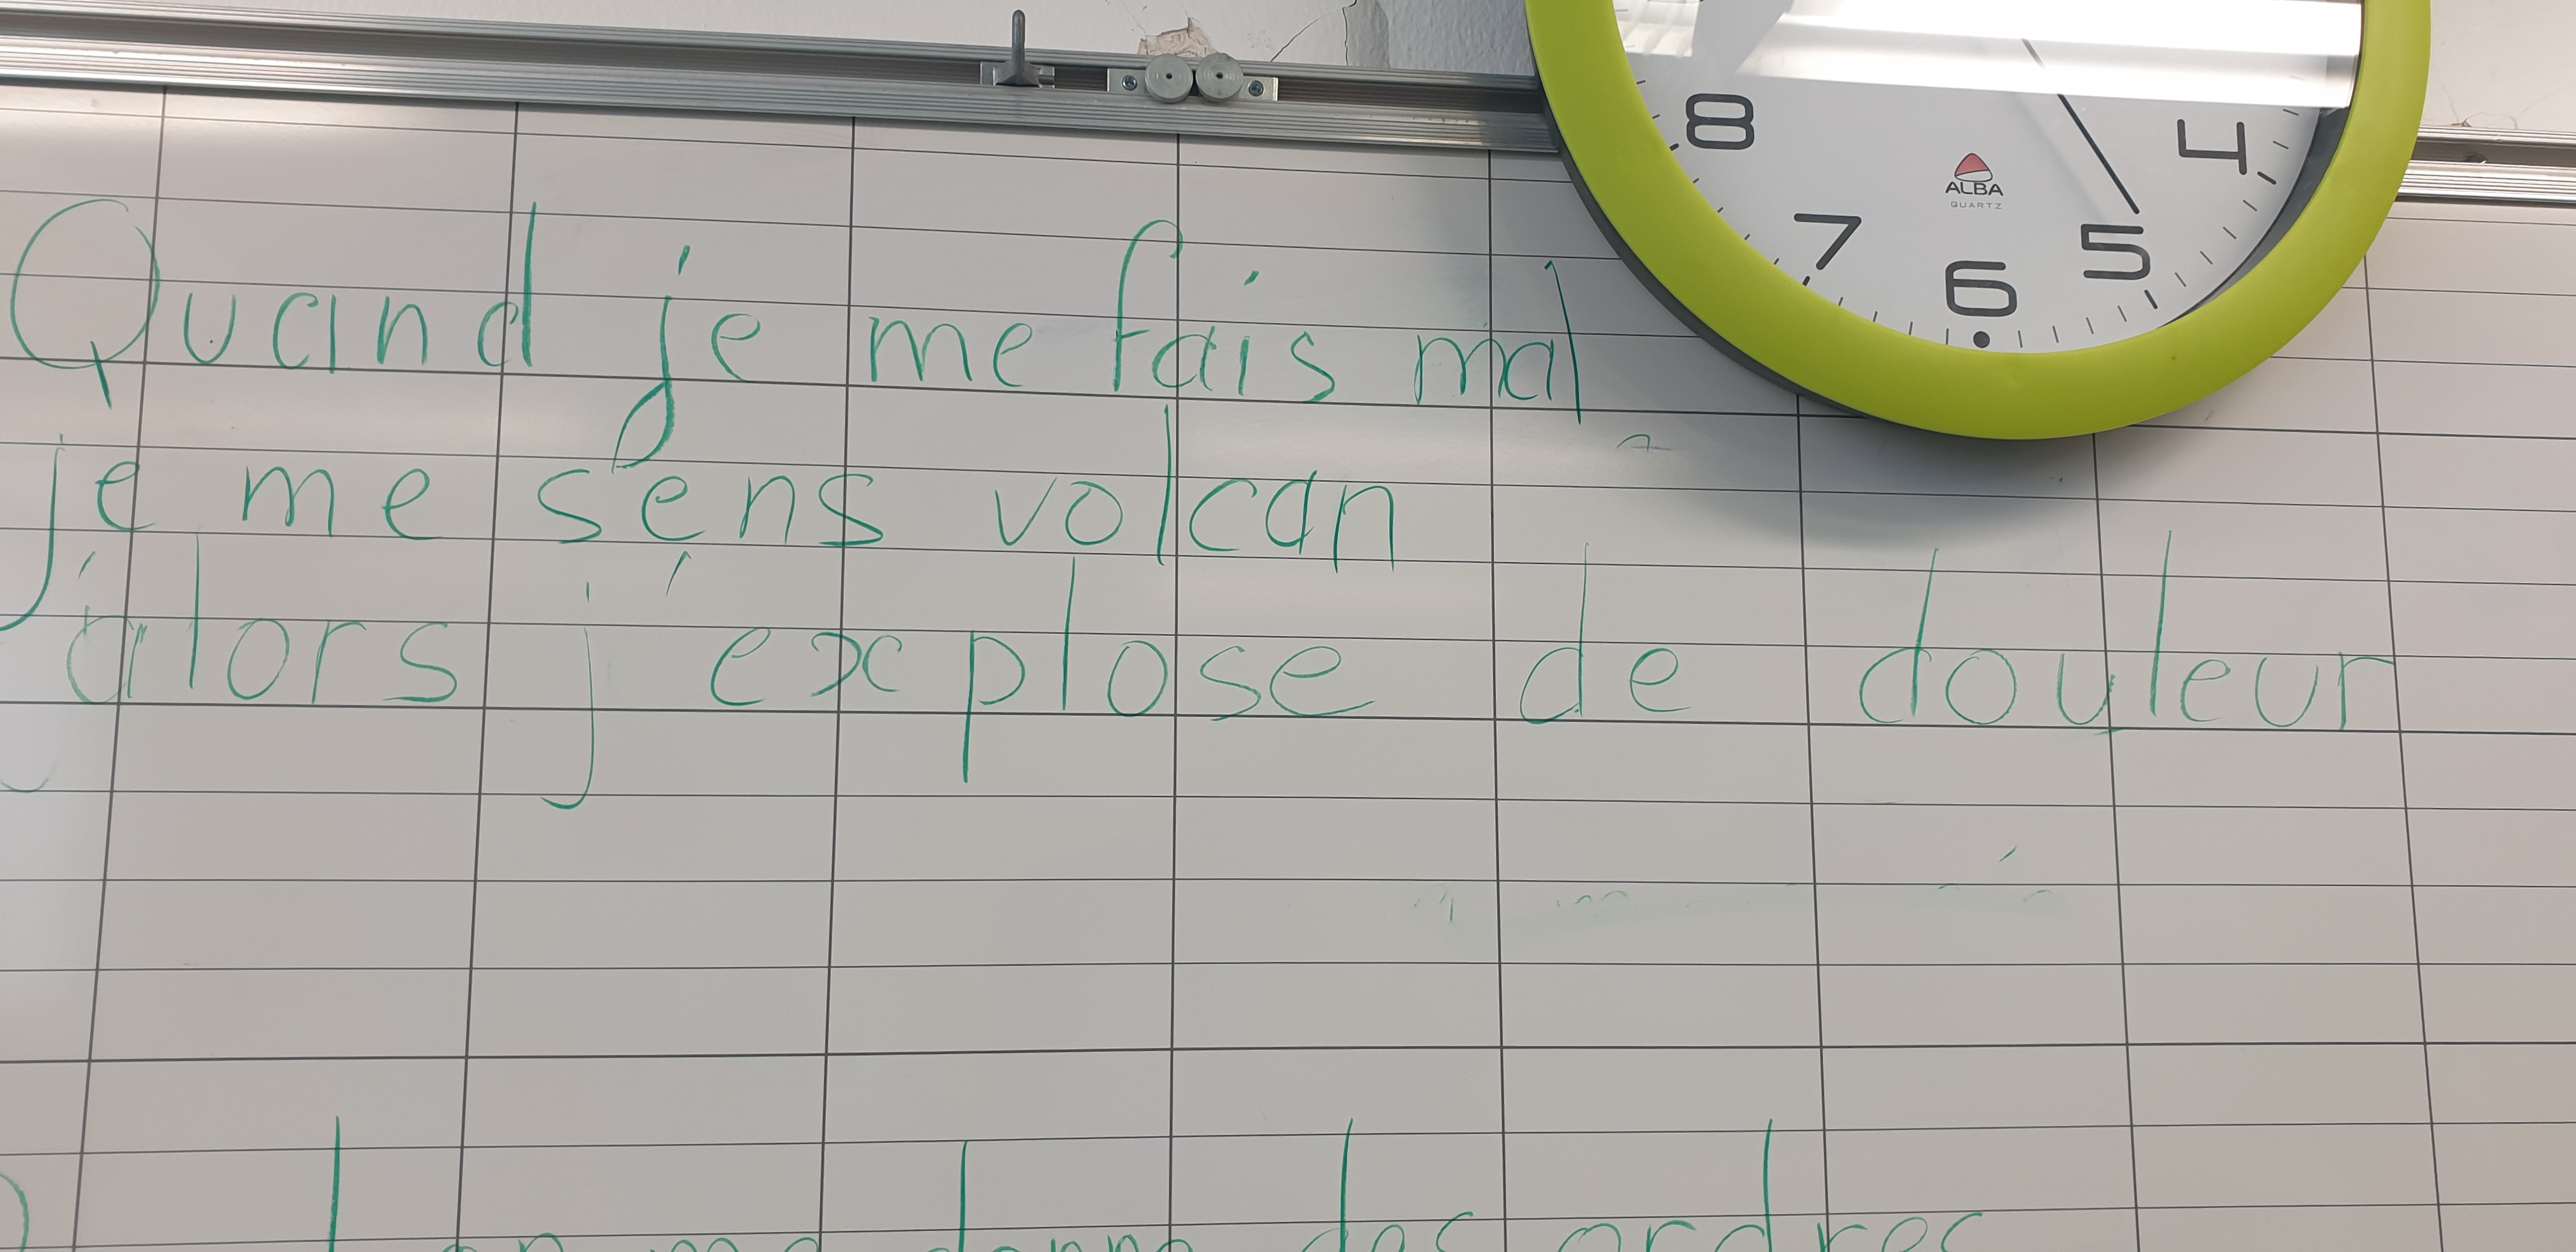 Quand je me fais mal
je me sens volcan
alors j'explose de douleur
on me donne des ordres
8
7
6
5
4
ALBA
QUARTZ